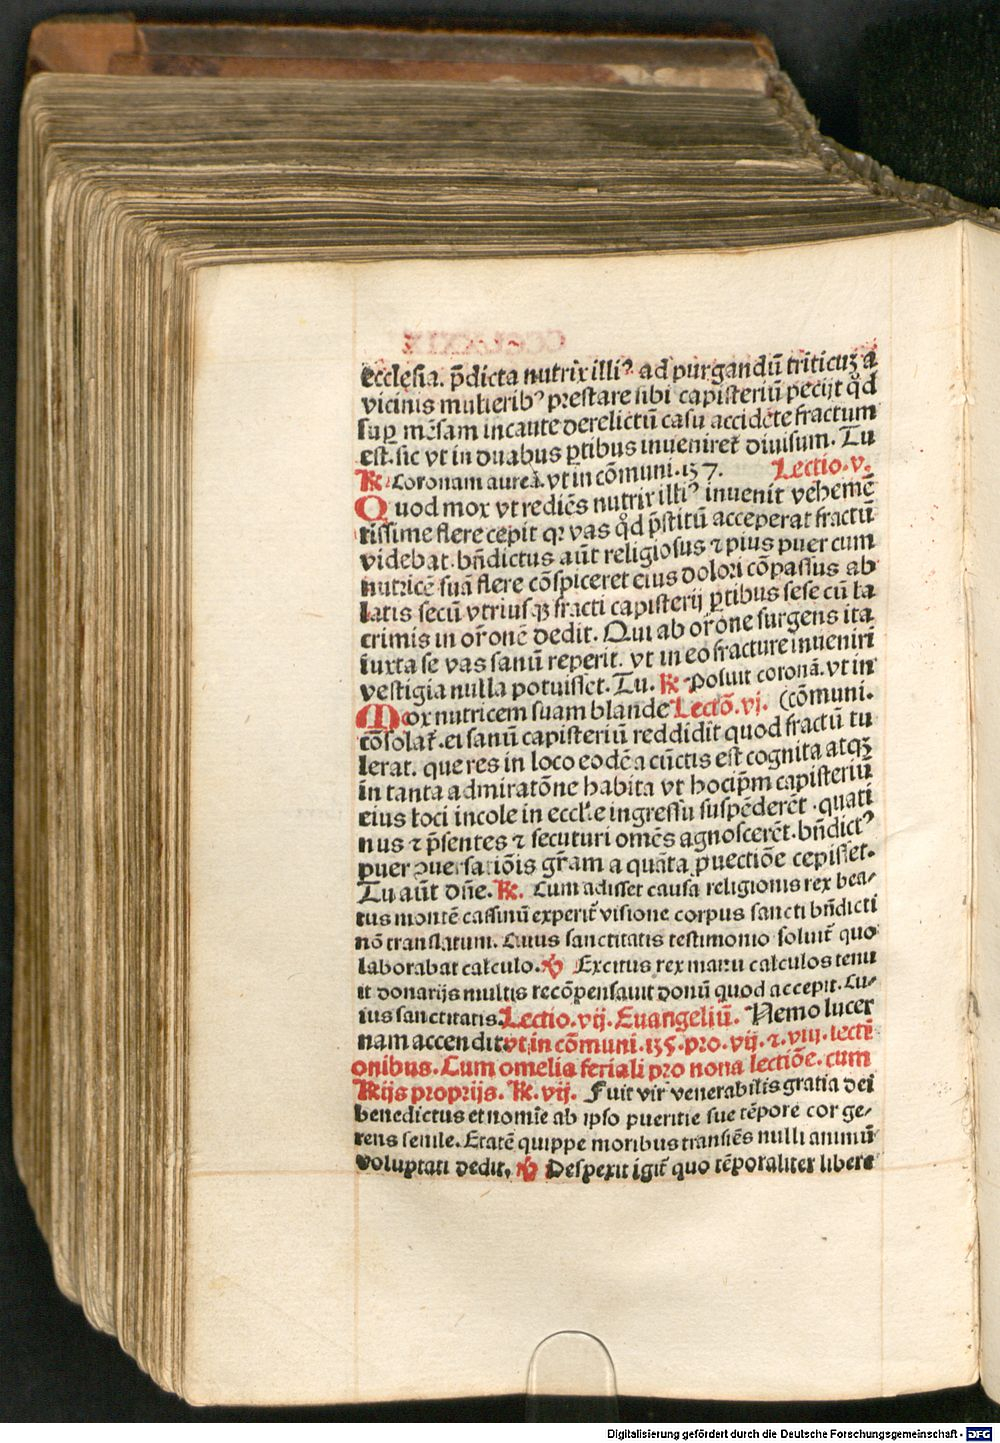 ecclesia. p̄dicta nutrix illiꝰ ad purgandū triticuꝫ a
vicinis mulieribꝰ prestare sibi capisteriū pecijt qd̊
suꝑ mēsam incaute derelictū casu accidēte fractum
est. sic vt in duabus ꝑtibus inuenireꞇ̄ diuisum. Tu
℟ Coronam aureā. vt in cōmuni. 157. Lectio. v.
Quod mox vt rediēs nutrix illiꝰ inuenit vehemē
tissime flere cepit qꝛ vas qd̊ p̄stitū acceperat fractū
videbat. bn̄dictus aūt religiosus ⁊ pius puer cum
nutricē suā flere cōspiceret eius dolori cōpassus ab
latis secū vtriusqꝫ fracti capisterij ꝑtibus sese cū la
crimis in or̄onē dedit. Qui ab or̄one surgens ita
iuxta se vas sanū reperit. vt in eo fracture inueniri
vestigia nulla potuisset. Tu. ℟ Posuit coronā. vt in
Mox nutricem suam blande Lectō. vj. (cōmuni.
cōsolaꞇ̄. ei sanū capisteriū reddidit quod fractū tu
lerat. que res in loco eodē a cūctis est cognita atqꝫ
in tanta admiratōne habita vt hoc ip̄m capisteriū
eius loci incole in eccl̄ie ingressu suspēderēt. quati
nus ⁊ p̄sentes ⁊ secuturi omēs agnoscerēt. bn̄dictꝰ
puer ↄuersatiōis gr̄am a quāta ꝓuectiōe cepisset.
Tu aūt dn̄e. ℟. Cum adisset causa religionis rex bea-
tus montē cassinū experiꞇ̄ visione corpus sancti bn̄dicti
nō translatum. Cuius sanctitatis testimonio soluiꞇ̄ quo
laborabat calculo. ℣ Excitus rex manu calculos tenu
it donarijs multis recōpensauit donū quod accepit. Cu-
ius sanctitatis. Lectio. vij. Euangeliū. Nemo lucer
nam accendit vt in cōmuni. 135. pro. vij. ⁊. viij. lecti
onibus. Cum omelia feriali pro nona lectiōe. cum
℟ijs proprijs. ℟. vij. Fuit vir venerabilis gratia dei
benedictus et nomīe ab ipso pueritie sue tēpore cor ge-
rens senile. Etatē quippe moribus transiēs nulli animū
voluptati dedit. ℣ Despexit igiꞇ̄ quo tēporaliter libere
Digitalisierung gefördert durch die Deutsche Forschungsgemeinschaft - DFG